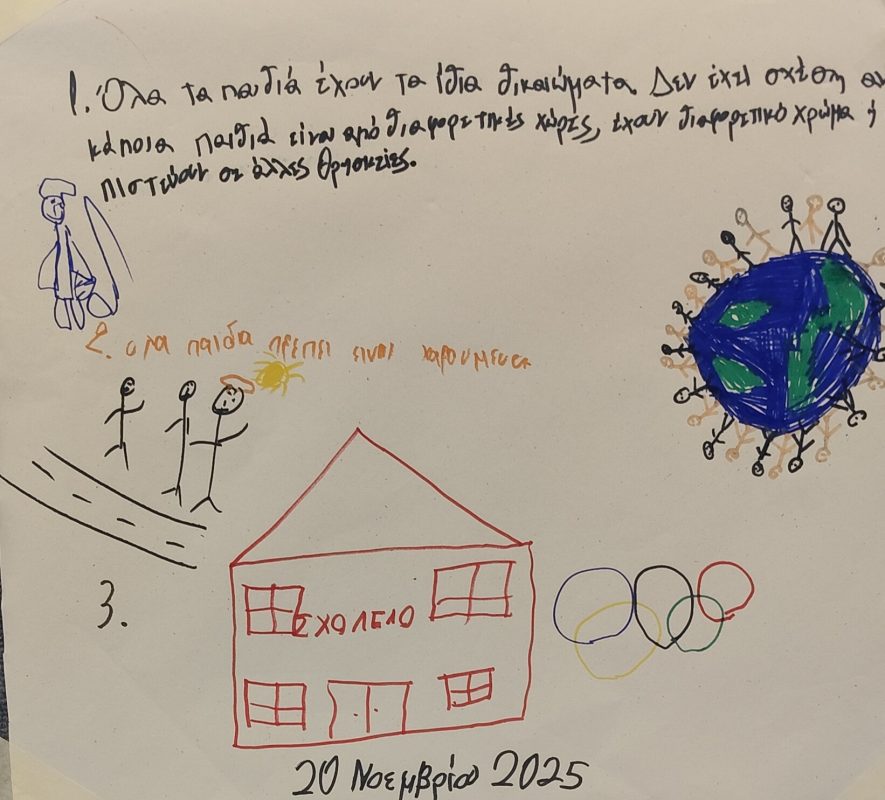 1. Όλα τα παιδιά έχουν τα ίδια δικαιώματα. Δεν έχει σχέση αν
κάποια παιδιά είναι από διαφορετικές χώρες, έχουν διαφορετικό χρώμα ή
πιστεύουν σε άλλες θρησκείες.
2. ολα παιδα πρεπει ειναι χαρουμενα
3.
ΣΧΟΛΕΛΟ
20 Νοεμβρίου 2025